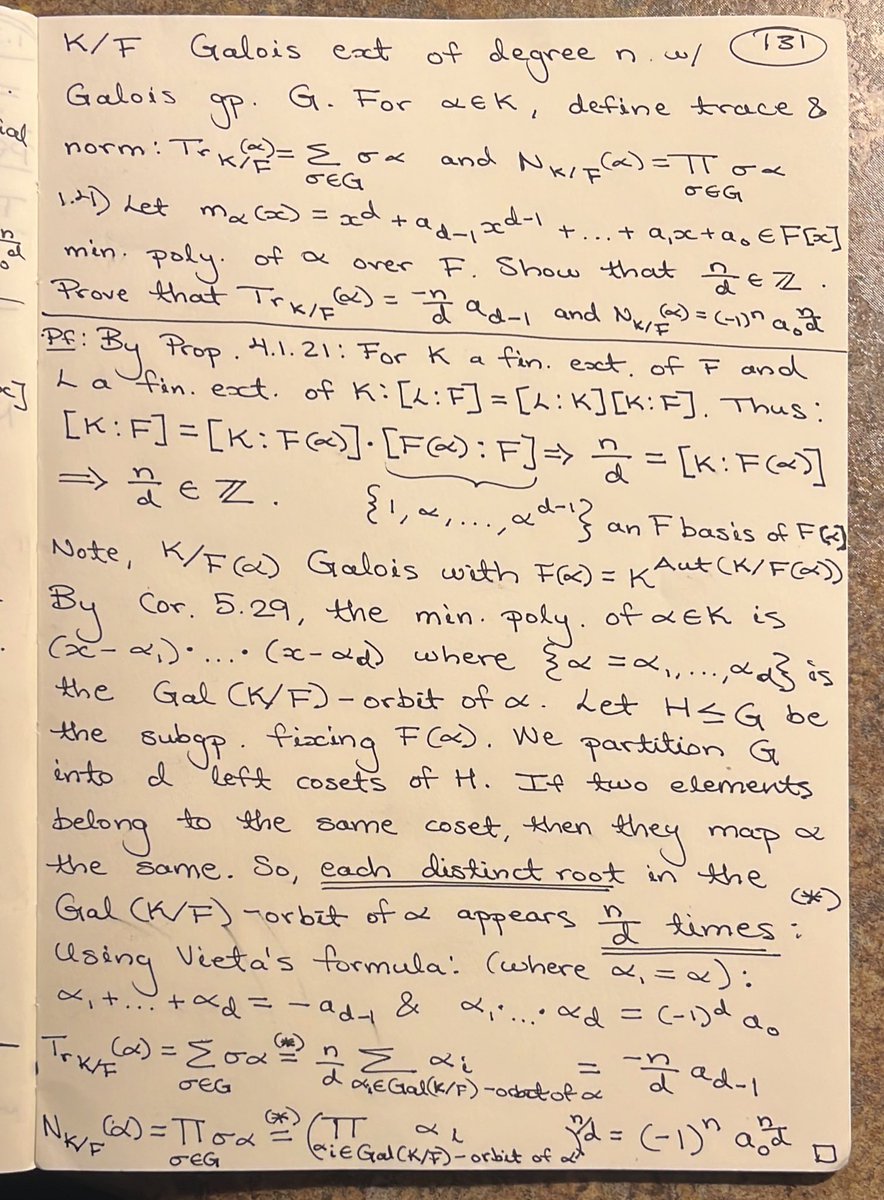 K/F Galois ext of degree n w/ 131
Galois gp. G. For α∈K, define trace &
norm: Tr_{K/F}(α) = Σ_{σ∈G} σα and N_{K/F}(α) = Π_{σ∈G} σα
1.21) Let m_α(x) = x^d + a_{d-1}x^{d-1} + ... + a_1x + a_0 ∈ F[x]
min. poly. of α over F. Show that n/d ∈ ℤ.
Prove that Tr_{K/F}(α) = -n/d a_{d-1} and N_{K/F}(α) = (-1)^n a_0^{n/d}
Pf: By Prop. 4.1.21: For K a fin. ext. of F and
L a fin. ext. of K: [L:F] = [L:K][K:F]. Thus:
[K:F] = [K:F(α)]·[F(α):F] ⇒ n/d = [K:F(α)]
⇒ n/d ∈ ℤ. {1, α, ..., α^{d-1}} an F basis of F(α)
Note, K/F(α) Galois with F(α) = K^{Aut(K/F(α))}
By Cor. 5.29, the min. poly. of α∈K is
(x-α_1)·...·(x-α_d) where {α=α_1,...,α_d} is
the Gal(K/F)-orbit of α. Let H≤G be
the subgp. fixing F(α). We partition G
into d left cosets of H. If two elements
belong to the same coset, then they map α
the same. So, each distinct root in the (*)
Gal(K/F)-orbit of α appears n/d times:
Using Vieta's formula: (where α_1 = α):
α_1+...+α_d = -a_{d-1} & α_1·...·α_d = (-1)^d a_0
Tr_{K/F}(α) = Σ_{σ∈G} σα (*)= n/d Σ_{α_i∈Gal(K/F)-orbit of α} α_i = -n/d a_{d-1}
N_{K/F}(α) = Π_{σ∈G} σα (*)= (Π_{α_i∈Gal(K/F)-orbit of α} α_i)^{n/d} = (-1)^n a_0^{n/d} □